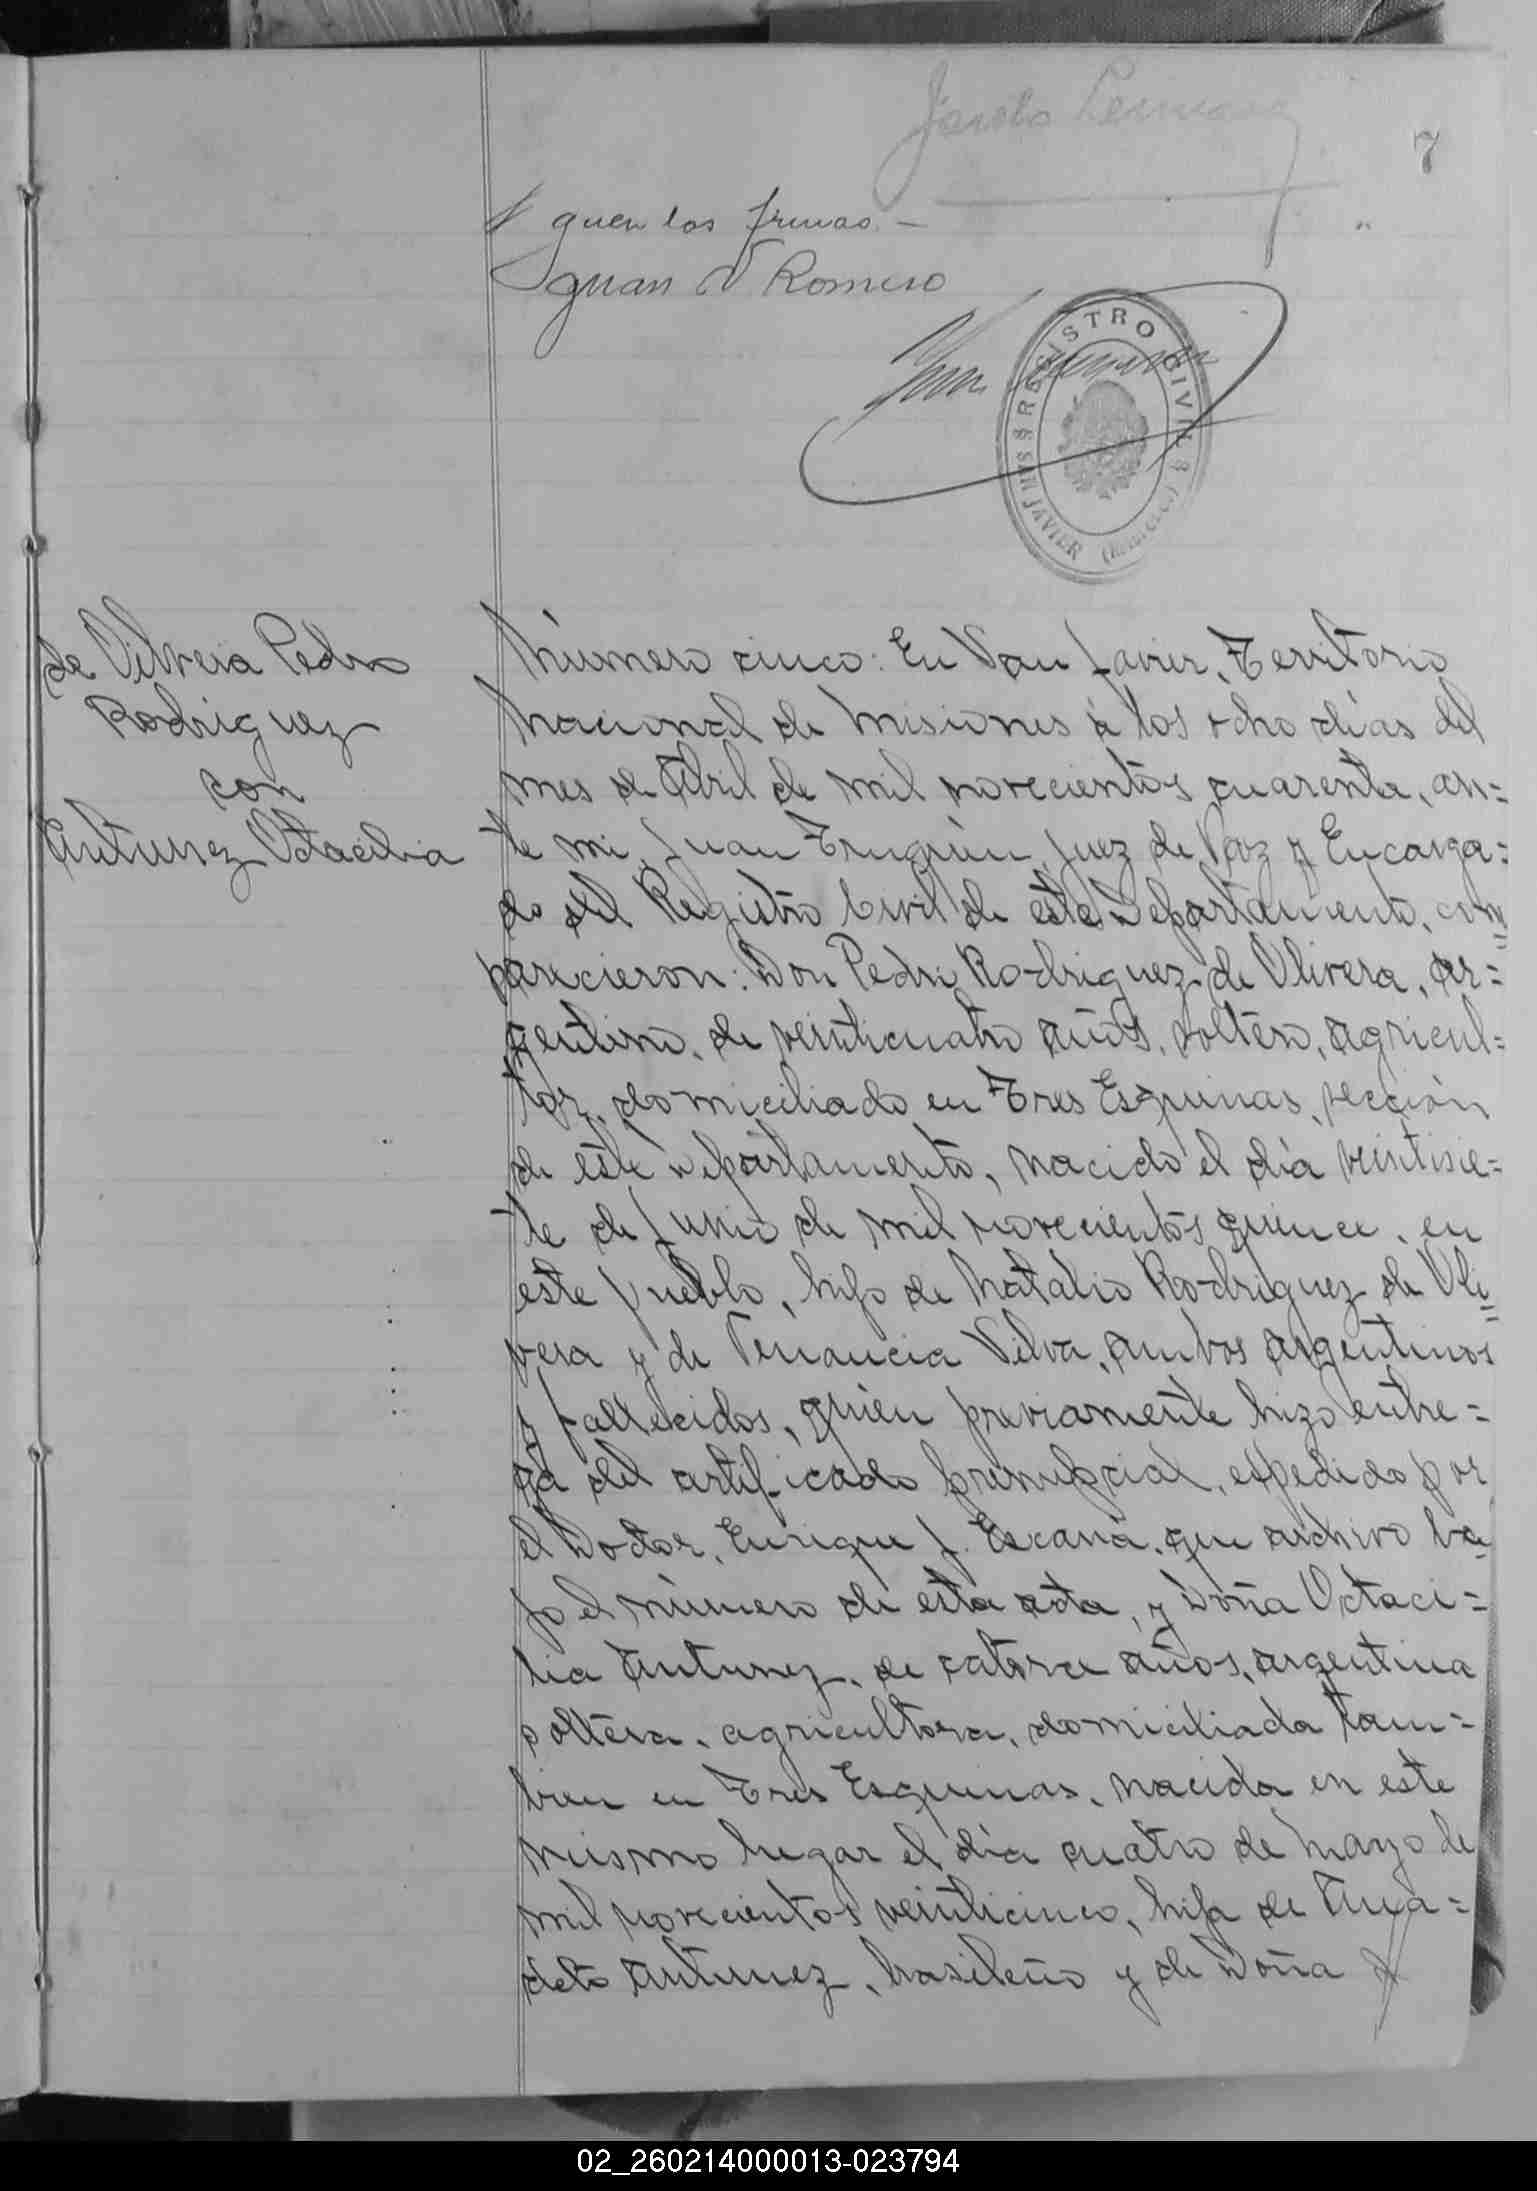 7
guen las firmas. —
Juan V Romero
REGISTRO CIVIL
SAN JAVIER (Misiones)
de Oliveira Pedro
Rodriguez
con
Antunez Octacilia
Número cinco: En San Javier, Territorio
Nacional de Misiones á los ocho días del
mes de Abril de mil novecientos cuarenta, an=
te mi, Juan Juez de Paz y Encarga=
do del Registro Civil de este Departamento, com=
parecieron: Don Pedro Rodriguez de Olivera, ar=
gentino, de veinticuatro años, soltero, agricul=
tor, domiciliado en Tres Esquinas, sección
de este Departamento, nacido el día veintisie=
te de Junio de mil novecientos quince, en
este pueblo, hijo de Natalio Rodriguez de Oli=
vera y de Venancia Silva, ambos argentinos
y fallecidos, quien previamente hizo entre=
ga del certificado prenupcial, espedido por
el Doctor, Enrique J. que archivo ba
jo el número de esta acta, y Doña Octaci=
lia Antunez, de catorce años, argentina
soltera, agricultora, domiciliada tam=
bien en Tres Esquinas, nacida en este
mismo lugar el día cuatro de Mayo de
mil novecientos veinticinco, hija de Ana=
cleto Antunez, brasileño y de Doña
02_260214000013-023794